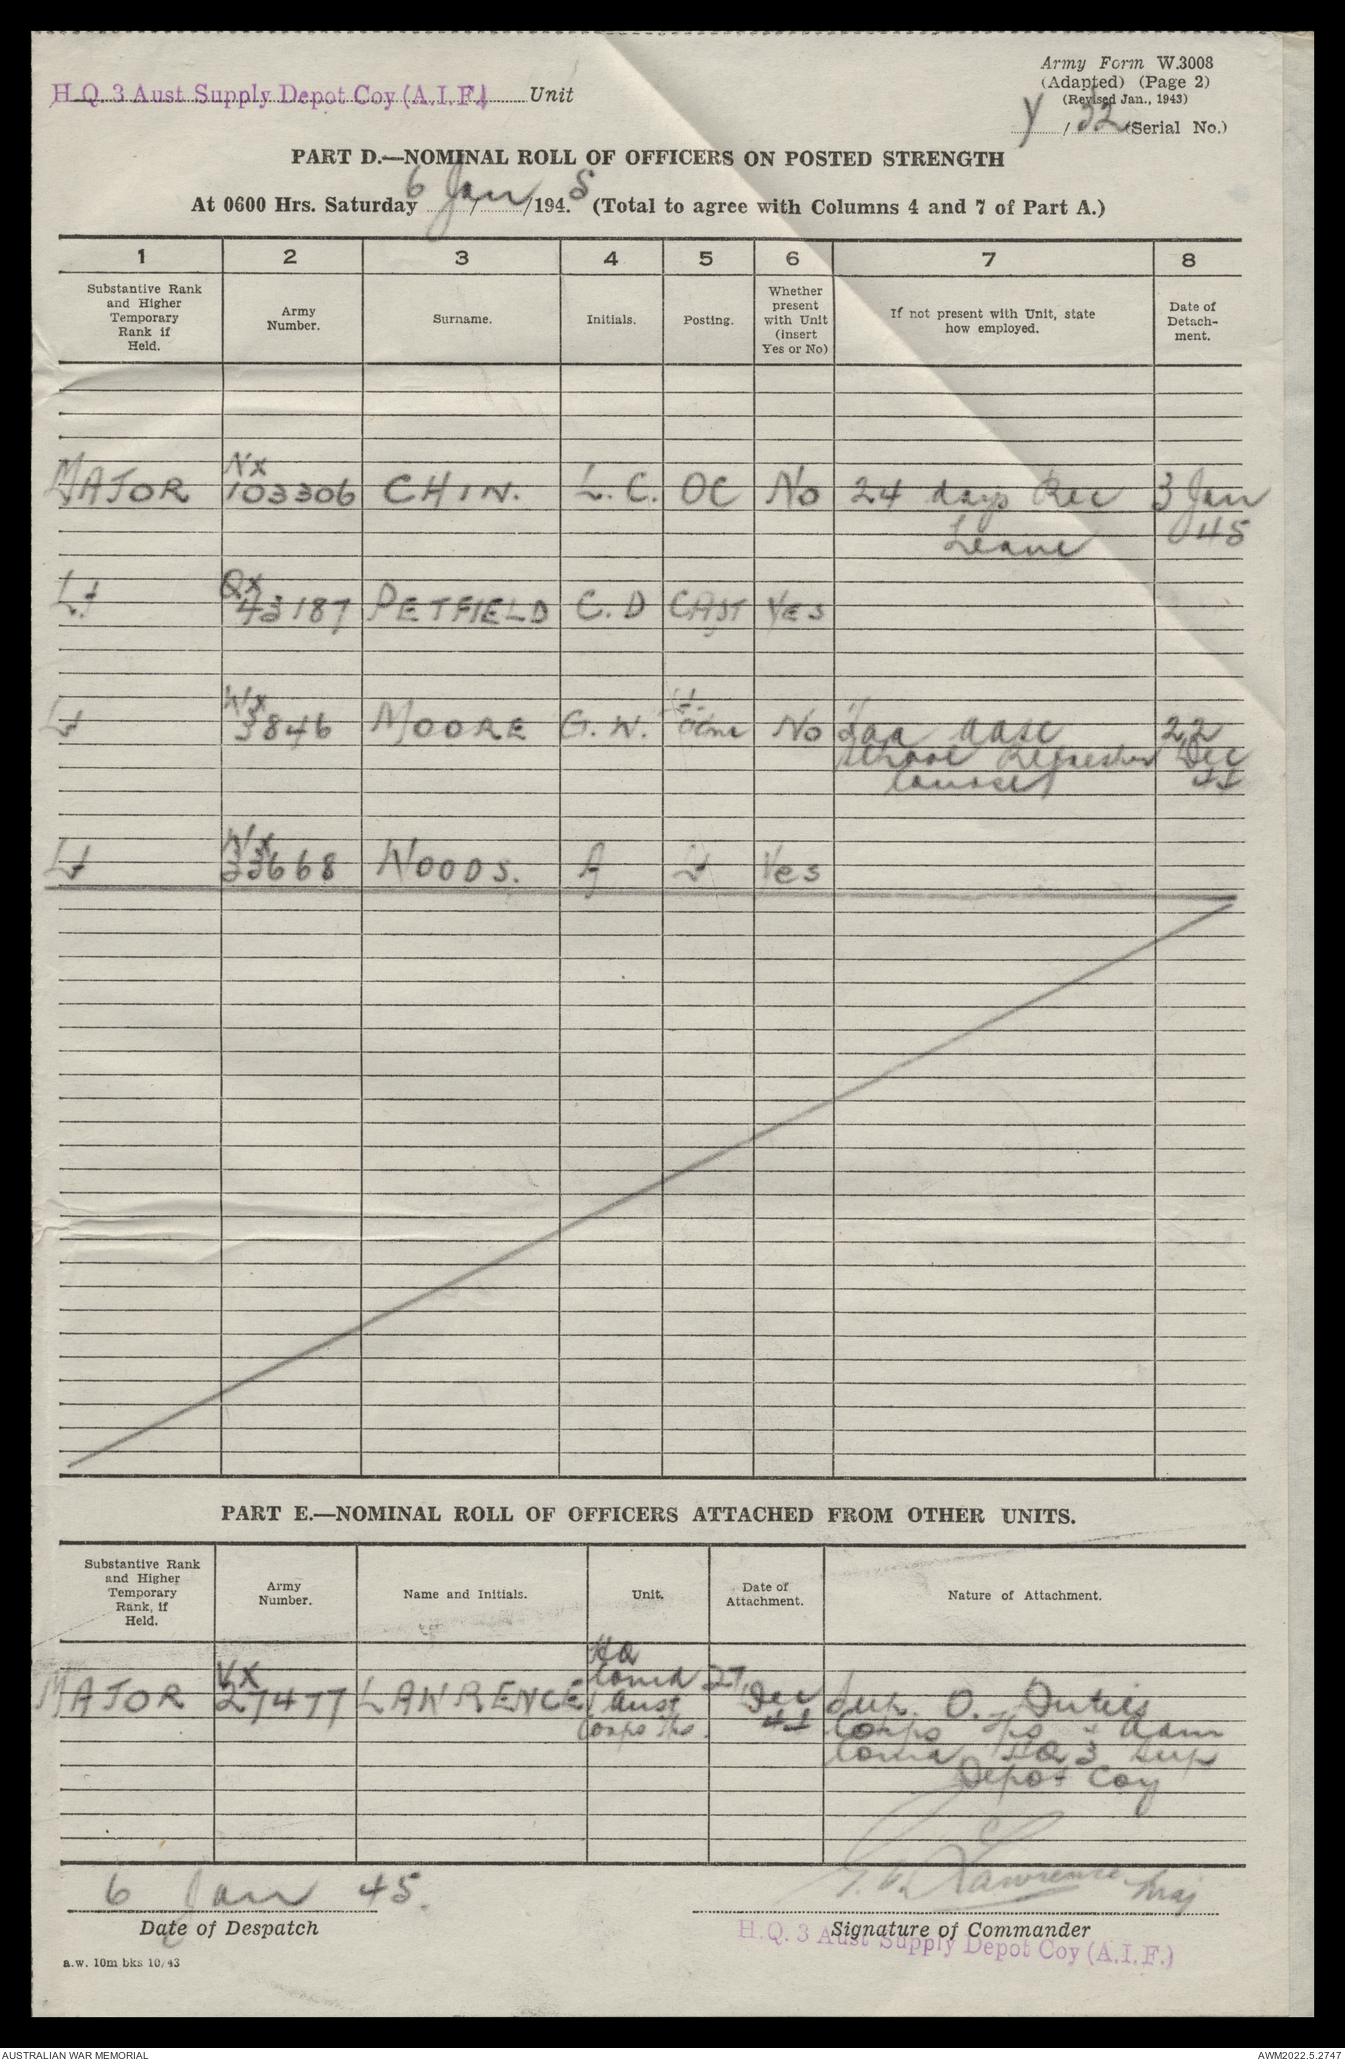 H.Q. 3 Aust Supply Depot Coy (A.I.F.) Unit
Army Form W.3008
(Adapted) (Page 2)
(Revised Jan., 1943)
Y / 32 (Serial No.)
PART D.—NOMINAL ROLL OF OFFICERS ON POSTED STRENGTH
At 0600 Hrs. Saturday 6 / Jan /1945 (Total to agree with Columns 4 and 7 of Part A.)
1 2 3 4 5 6 7 8
Substantive Rank and Higher Temporary Rank if Held.
Army Number.
Surname.
Initials.
Posting.
Whether present with Unit (insert Yes or No)
If not present with Unit, state how employed.
Date of Detach- ment.
NX
MAJOR 103306 CHIN. L. C. OC No 24 days Rec 3 Jan
Leave 45
QX
Lt 43187 PETFIELD C. D CAPT YES
WX
Lt 3846 MOORE G. W. No LHQ AASC 22
School Refresher Dec
Course 44
NX
Lt 33668 WOODS. A Lt Yes
PART E.—NOMINAL ROLL OF OFFICERS ATTACHED FROM OTHER UNITS.
Substantive Rank and Higher Temporary Rank, if Held.
Army Number.
Name and Initials.
Unit.
Date of Attachment.
Nature of Attachment.
HQ
VX Comd 27
MAJOR 27477 LAWRENCE 1 Aust Dec Sup. O. Duties
Corps Tps. 44 Corps Tps & Adm
Comd HQ 3 Sup
Depot Coy
6 Jan 45.
Lawrence Maj
Date of Despatch
Signature of Commander
H.Q. 3 Aust Supply Depot Coy (A.I.F.)
a.w. 10m bks 10/43
AUSTRALIAN WAR MEMORIAL
AWM2022.5.2747